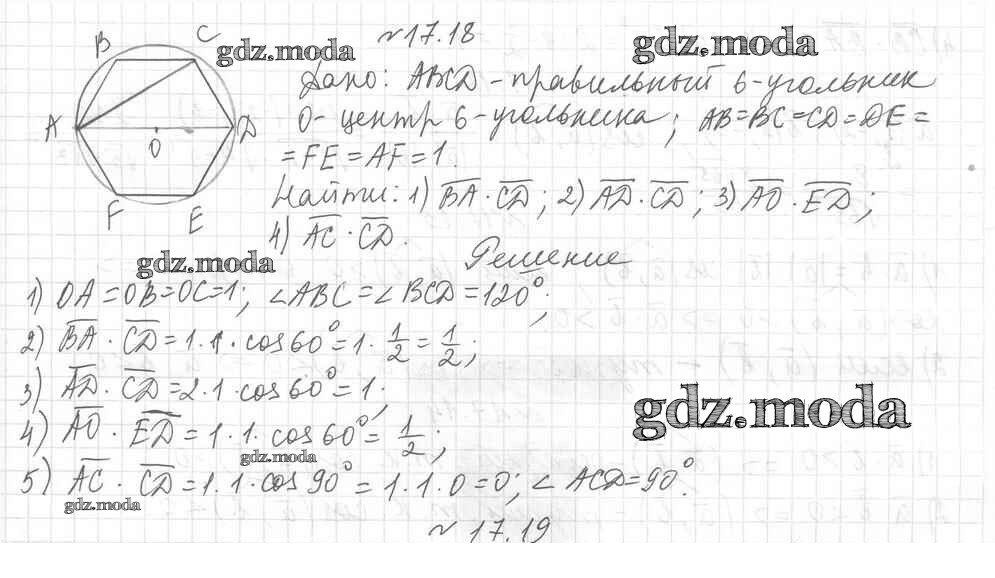 B C
A O D
F E
gdz.moda
gdz.moda
№17.18
Дано: ABCD - правильный 6-угольник
O - центр 6-угольника; AB=BC=CD=DE=
=FE=AF=1.
Найти: 1) BA·CD; 2) AD·CD; 3) AO·ED;
4) AC·CD.
gdz.moda
Решение
1) OA=OB=OC=1; ∠ABC=∠BCD=120°;
2) BA·CD=1·1·cos60°=1·1/2=1/2;
3) AD·CD=2·1·cos60°=1;
4) AO·ED=1·1·cos60°=1/2;
gdz.moda
gdz.moda
5) AC·CD=1·1·cos90°=1·1·0=0; ∠ACD=90°.
gdz.moda
№17.19